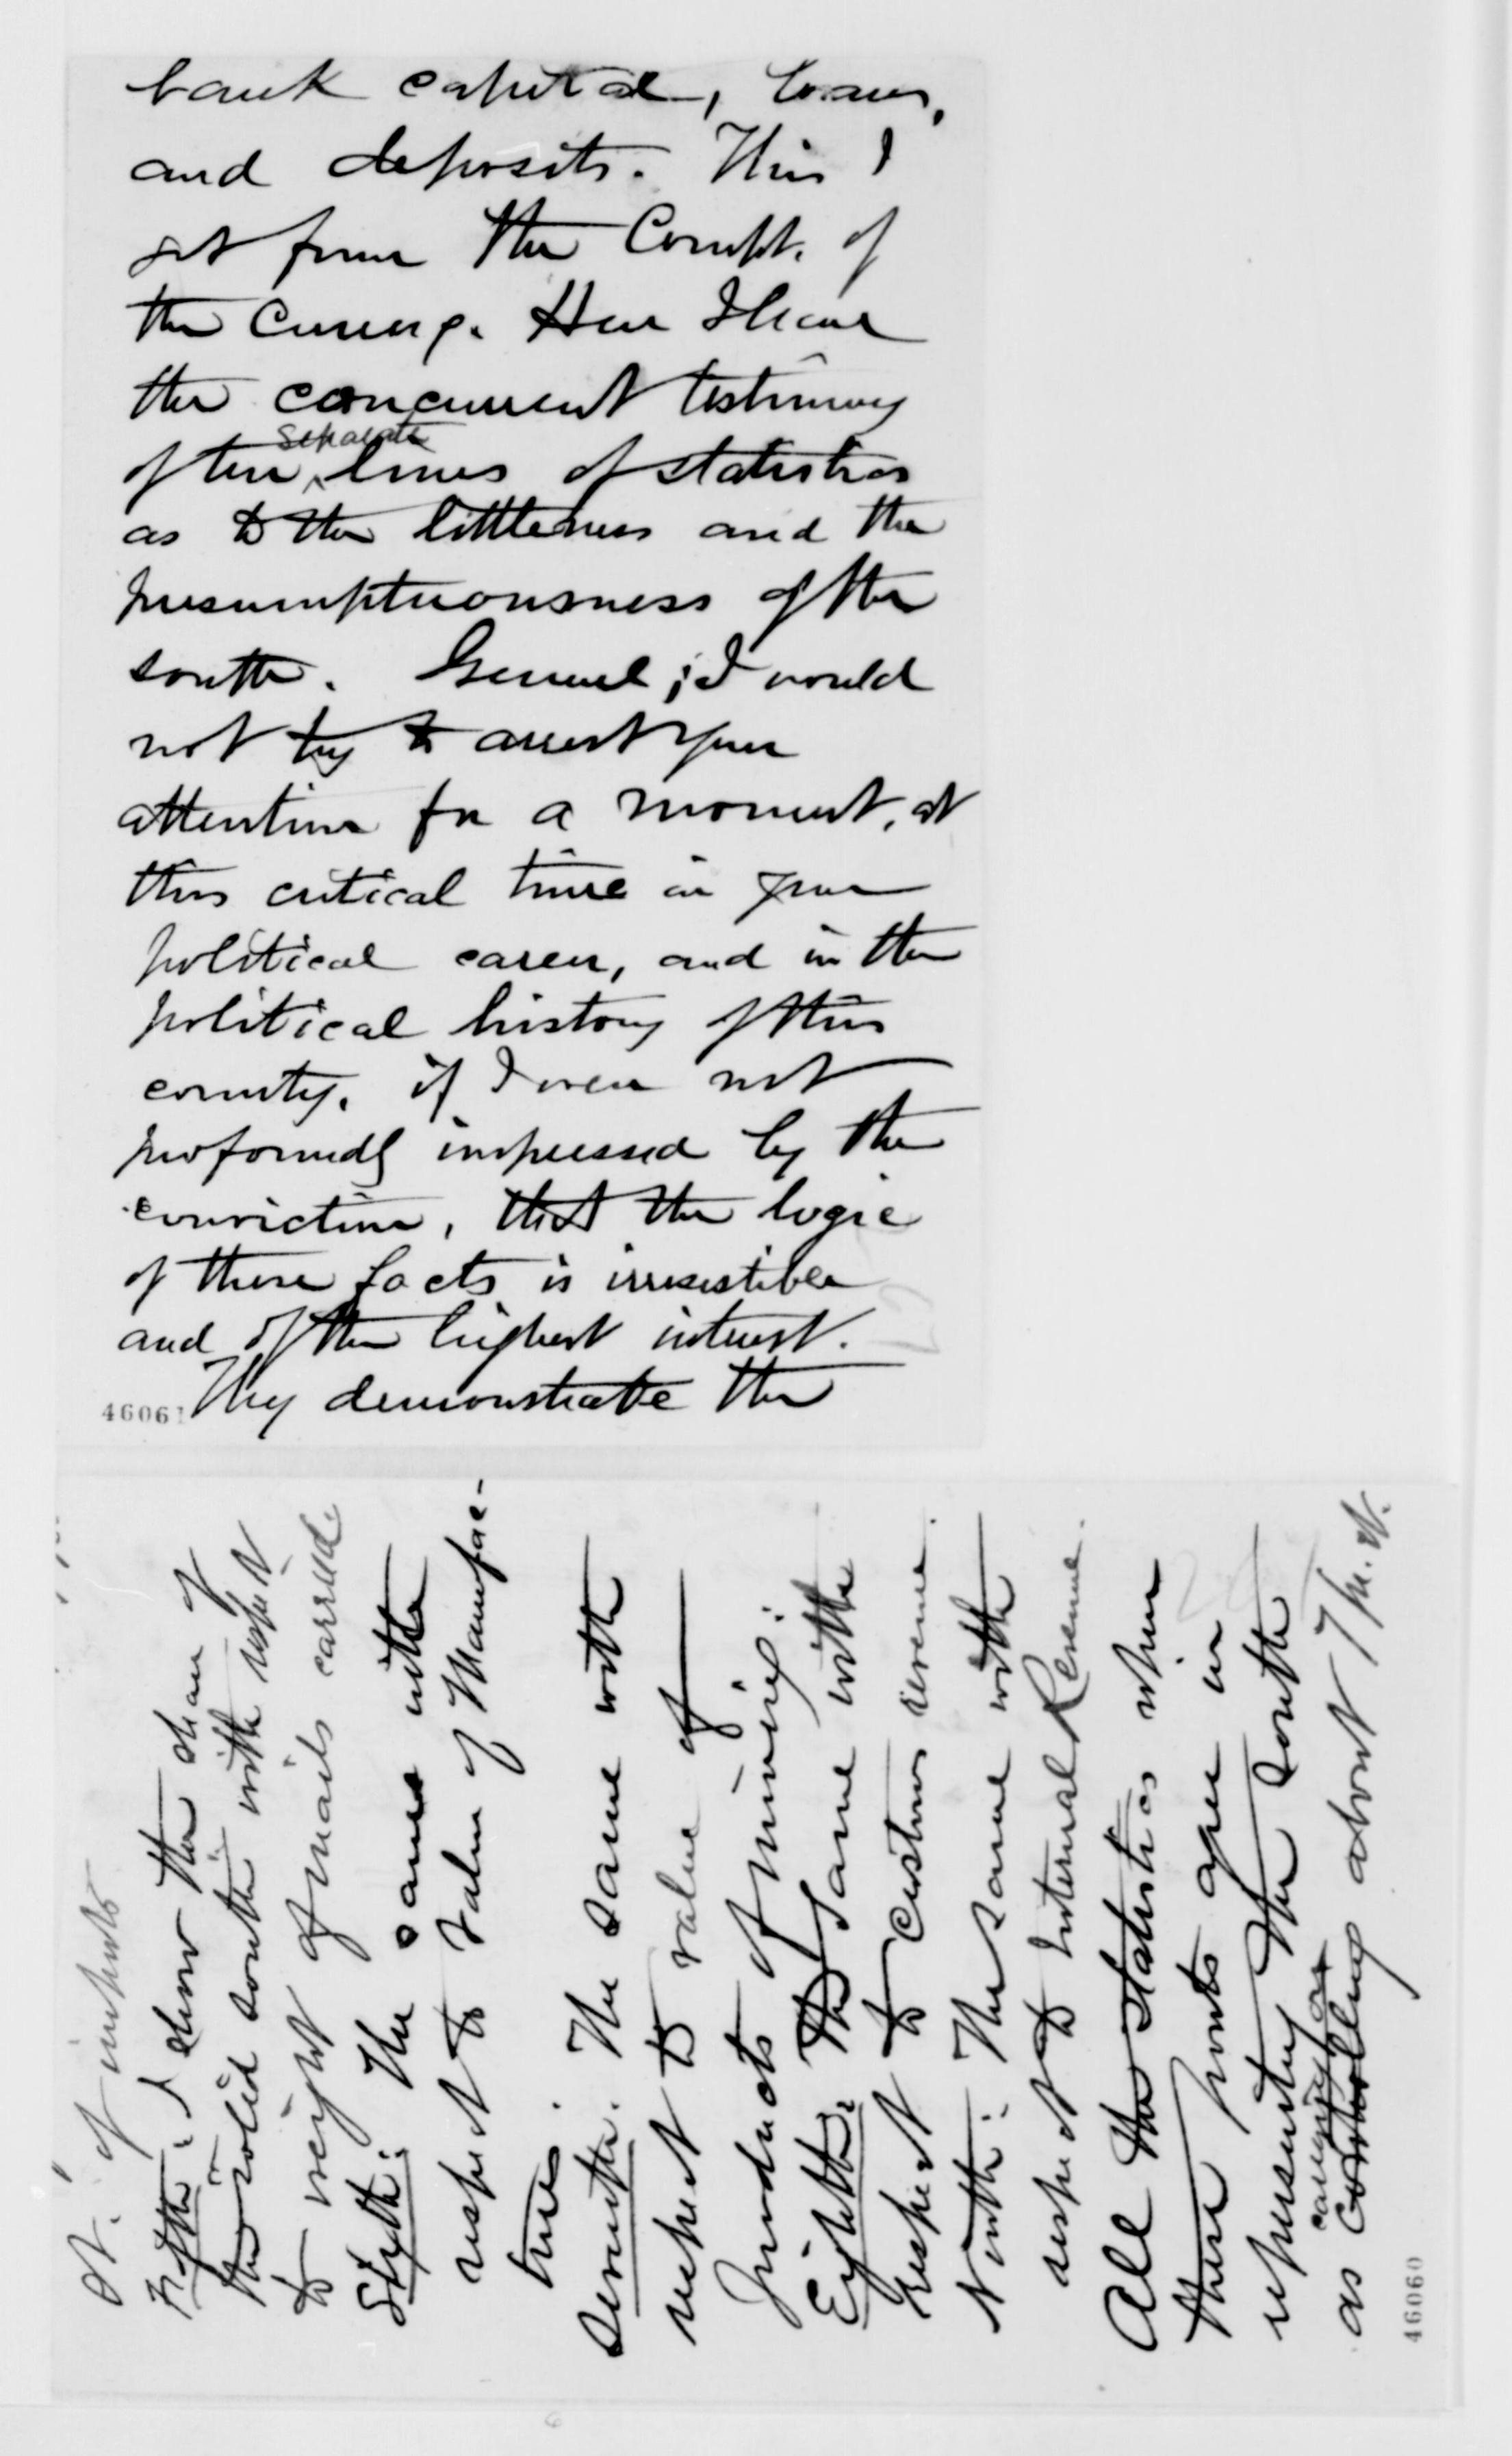 bank capital, loans,
and deposits. This I
get from the Compt. of
the Currency. Here I have
the concurrent testimony
separate
of ten lines of statistics
as to the littleness and the
presumptuousness of the
south. General, I would
not try to arrest your
attention for a moment, at
this critical time in your
political career, and in the
political history of this
country, if I were not
profoundly impressed by the
conviction, that the logic
of these facts is irresistible
and of the highest interest.
They demonstrate the
46061
ct. of imports
Fifth: I show the share of
the solid south with respect
to weight of mails carried
Sixth: The same with
respect to value of Manufac-
tures.
Seventh. The same with
respect to value of
products of mining:
Eighth: The same with
respect to Customs revenue.
Ninth: The same with
respect to Internal Revenue.
All the statistics when
these points agree in
representing the South
carrying on
as controlling about 7 pr. ct.
46060